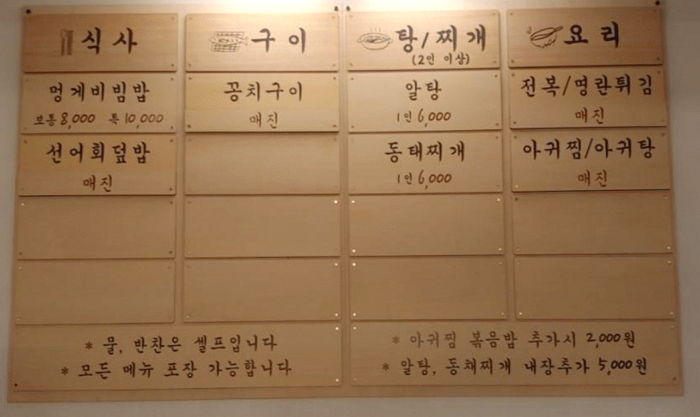 식사
멍게비빔밥
보통 8,000 특 10,000
선어회덮밥
매진
구이
꽁치구이
매진
탕/찌개
(2인 이상)
알탕
1인 6,000
동태찌개
1인 6,000
요리
전복/명란튀김
매진
아귀찜/아귀탕
매진
* 물, 반찬은 셀프입니다
* 모든 메뉴 포장 가능합니다
* 아귀찜 볶음밥 추가시 2,000원
* 알탕, 동채찌개 내장추가 5,000원